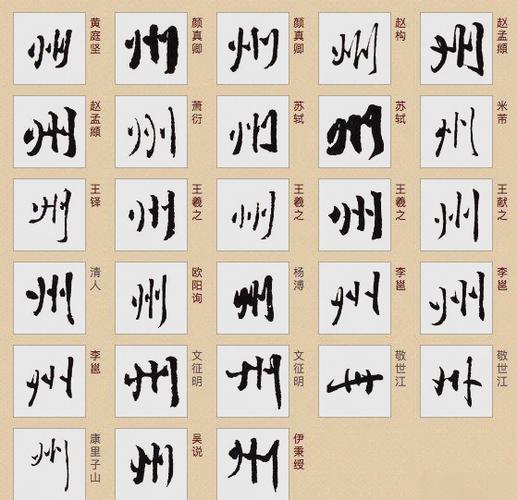 州 黄庭坚
州 颜真卿
州 颜真卿
州 赵构
州 赵孟頫
州 赵孟頫
州 萧衍
州 苏轼
州 苏轼
州 米芾
州 王铎
州 王羲之
州 王羲之
州 王羲之
州 王献之
州 清人
州 欧阳询
州 杨溥
州 李邕
州 李邕
州 李邕
州 文征明
州 文征明
州 敬世江
州 敬世江
州 康里子山
州 吴说
州 伊秉绶